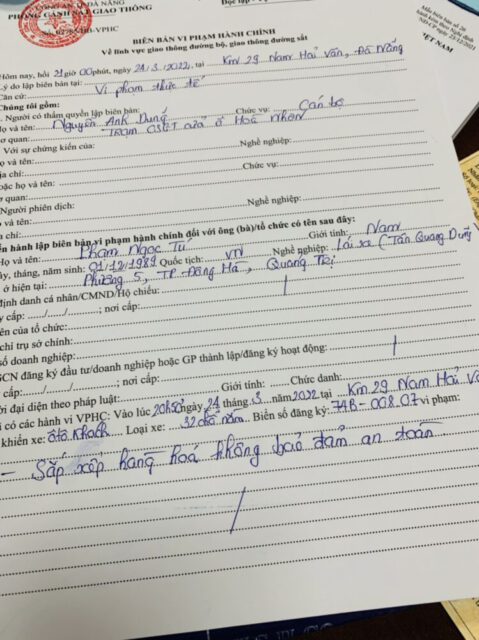 CÔNG AN TP ĐÀ NẴNG
PHÒNG CẢNH SÁT GIAO THÔNG
/BB-VPHC
Mẫu biên bản số 20
VIỆT NAM
BIÊN BẢN VI PHẠM HÀNH CHÍNH
Về lĩnh vực giao thông đường bộ, giao thông đường sắt
Hôm nay, hồi 21 giờ 00 phút, ngày 24/3/2022, tại Km 29 Nam Hải Vân, Đà Nẵng
Lý do lập biên bản tại:
Căn cứ: Vi phạm thực tế
Chúng tôi gồm:
Người có thẩm quyền lập biên bản:
Họ và tên: Nguyễn Anh Dũng Chức vụ: Cán bộ
quan: Trạm CSGT cửa ô Hoà Nhơn
Với sự chứng kiến của:
Họ và tên: Nghề nghiệp:
chỉ:
Hoặc họ và tên: Chức vụ:
quan:
Người phiên dịch:
và tên: Nghề nghiệp:
chỉ:
ến hành lập biên bản vi phạm hành chính đối với ông (bà)/tổ chức có tên sau đây:
Họ và tên: Phạm Ngọc Tú Giới tính: Nam
ày, tháng, năm sinh: 01/12/1989 Quốc tịch: VN Nghề nghiệp: Lái xe (Tân Quang Dũng
ở hiện tại: Phường 5, TP Đông Hà, Quảng Trị
định danh cá nhân/CMND/Hộ chiếu:
y cấp: ..../..../....; nơi cấp:
ên của tổ chức:
chỉ trụ sở chính:
số doanh nghiệp:
GCN đăng ký đầu tư/doanh nghiệp hoặc GP thành lập/đăng ký hoạt động:
cấp: ..../..../....; nơi cấp:
ời đại diện theo pháp luật: Giới tính: Chức danh:
i có các hành vi VPHC: Vào lúc 20h50 ngày 24 tháng 3 năm 2022 tại Km 29 Nam Hải Vâ
khiển xe: ôtô khách Loại xe: Biển số đăng ký: 74B-008.07 vi phạm:
- Sắp xếp hàng hoá không bảo đảm an toàn